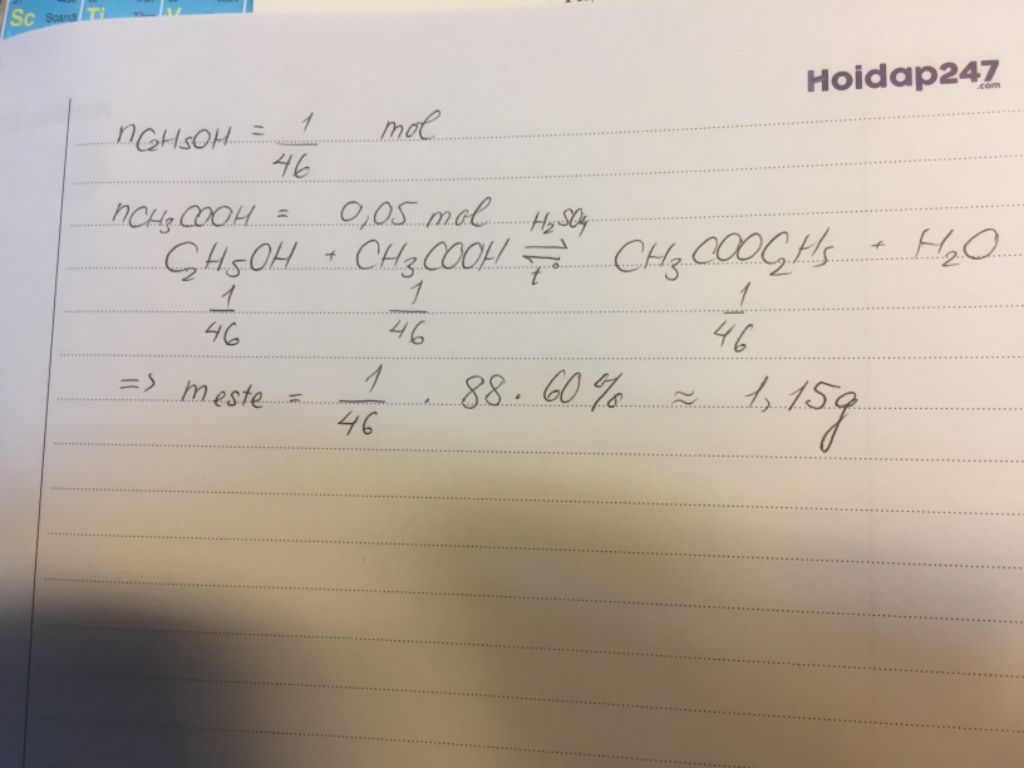 Sc Scandi Ti V
Hoidap247
.com
nC2H5OH = 1/46 mol
nCH3COOH = 0,05 mol
C2H5OH + CH3COOH ⇌ (H2SO4, t°) CH3COOC2H5 + H2O
1/46 1/46 1/46
=> meste = 1/46 . 88. 60% ≈ 1,15g